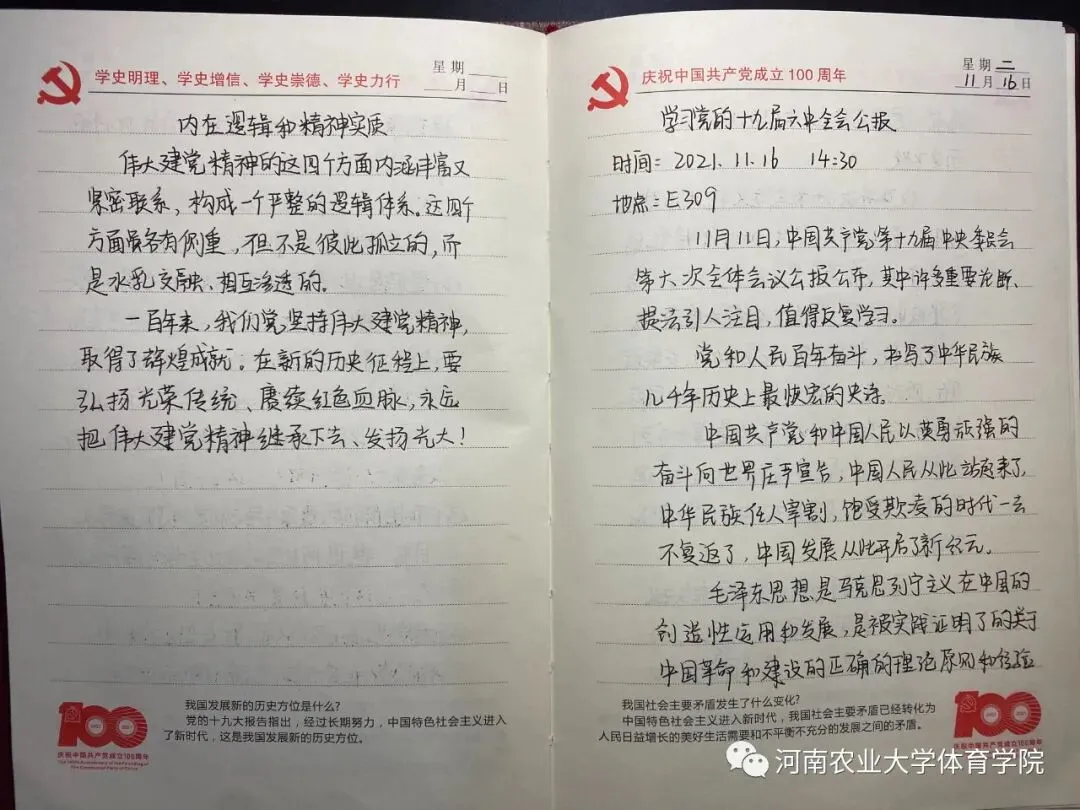 学史明理、学史增信、学史崇德、学史力行
星期
月 日
内在逻辑和精神实质
伟大建党精神的这四个方面内涵丰富又
紧密联系，构成一个严整的逻辑体系。这四个
方面虽各有侧重，但不是彼此孤立的，而
是水乳交融、相互渗透的。
一百年来，我们党坚持伟大建党精神，
取得了辉煌成就。在新的历史征程上，要
弘扬光荣传统、赓续红色血脉，永远
把伟大建党精神继承下去、发扬光大！
我国发展新的历史方位是什么？
党的十九大报告指出，经过长期努力，中国特色社会主义进入
了新时代，这是我国发展新的历史方位。
100
庆祝中国共产党成立100周年
庆祝中国共产党成立100周年
星期 二
11月16日
学习党的十九届六中全会公报
时间：2021.11.16 14:30
地点：E309
11月11日，中国共产党第十九届中央委员会
第六次全体会议公报公布，其中许多重要论断、
提法引人注目，值得反复学习。
党和人民百年奋斗，书写了中华民族
几千年历史上最恢宏的史诗。
中国共产党和中国人民以英勇顽强的
奋斗向世界庄严宣告，中国人民从此站起来了，
中华民族任人宰割，饱受欺凌的时代一去
不复返了，中国发展从此开启了新纪元。
毛泽东思想是马克思列宁主义在中国的
创造性运用和发展，是被实践证明了的关于
中国革命和建设的正确的理论原则和经验
我国社会主要矛盾发生了什么变化？
中国特色社会主义进入新时代，我国社会主要矛盾已经转化为
人民日益增长的美好生活需要和不平衡不充分的发展之间的矛盾。
100
庆祝中国共产党成立100周年
河南农业大学体育学院